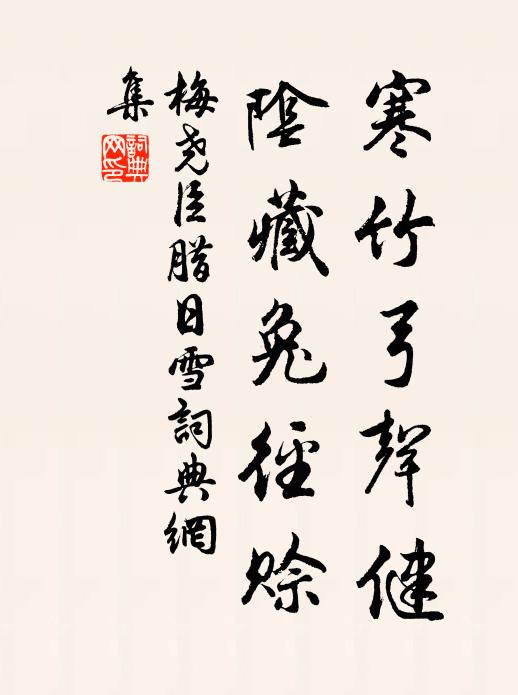 寒竹弓聲健
陰藏兔徑賒
梅堯臣腊日雪詞典網
集
詞典網印